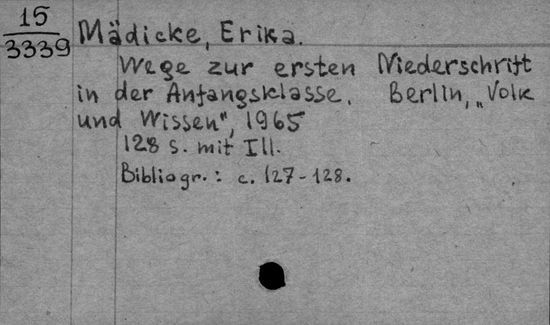 15
3339
Mädicke, Erika.
Wege zur ersten Niederschrift
in der Anfangsklasse. Berlin, „Volk
und Wissen", 1965
128 s. mit Ill.
Bibliogr.: c. 127-128.